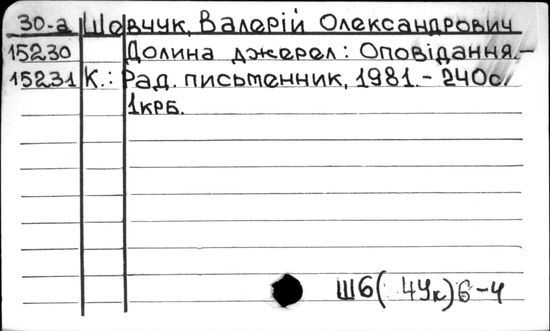 30-а Шевчук, Валерій Олександрович
15230 Долина джерел: Оповідання.–
15231 К.: Рад. письменник, 1981.– 240с.
1крб.
Ш6(4Ук)6-4